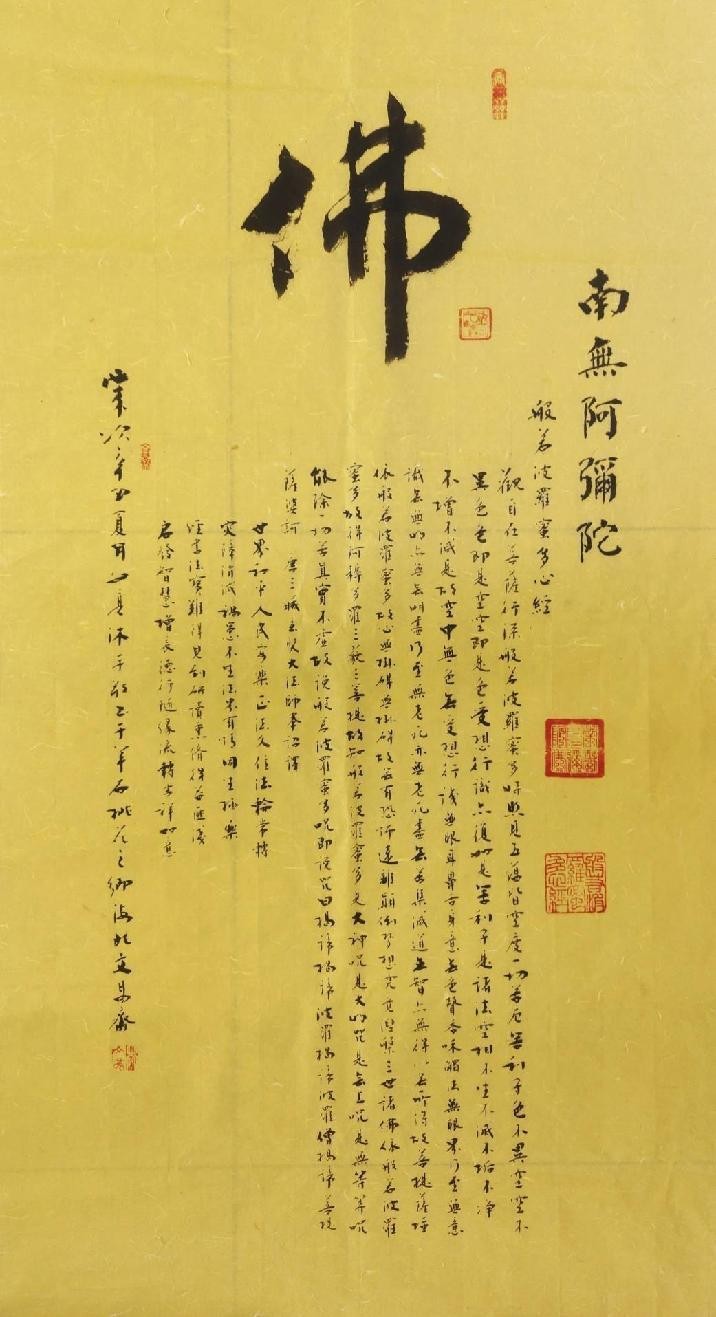 佛
南無阿彌陀
般若波羅蜜多心經
觀自在菩薩行深般若波羅蜜多時照見五蘊皆空度一切苦厄舍利子色不異空空不
異色色即是空空即是色受想行識亦復如是舍利子是諸法空相不生不滅不垢不净
不增不減是故空中無色無受想行識無眼耳鼻舌身意無色聲香味觸法無眼界乃至無意
識無無明亦無無明盡乃至無老死亦無老死盡無苦集滅道無智亦無得以無所得故菩提薩埵
依般若波羅蜜多故心無掛礙無掛礙故無有恐怖遠離顛倒夢想究竟涅槃三世諸佛依般若波羅
蜜多故得阿耨多羅三藐三菩提故知般若波羅蜜多是大神咒是大明咒是無上咒是無等等咒
能除一切苦真實不虛故說般若波羅蜜多咒即說咒曰揭諦揭諦波羅揭諦波羅僧揭諦菩提
薩婆訶 唐三藏玄奘大法師奉詔譯
世界和平人民安樂正法久住法輪常轉
灾障消滅禍患不生法界有情同生極樂
經書法寶難得見
啟發智慧增長德行隨緣流轉吉祥如意
歲次辛丑夏月